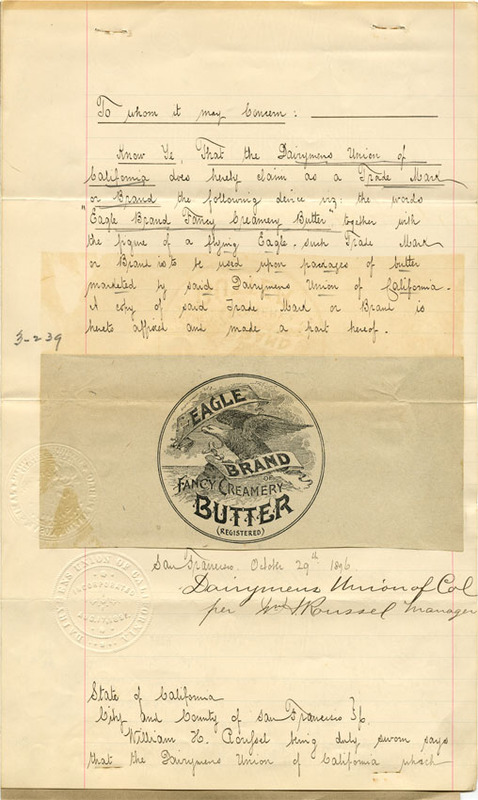 To whom it may Concern:
Know Ye, That the Dairymens Union of
California does hereby claim as a Trade Mark
or Brand the following device viz: the words
"Eagle Brand Fancy Creamery Butter" together with
the figure of a flying Eagle. such Trade Mark
or Brand is to be used upon packages of butter
marketed by said Dairymens Union of California.
A copy of said Trade Mark or Brand is
hereto affixed and made a part hereof.
3-239
EAGLE
BRAND
OF
FANCY CREAMERY
BUTTER
(REGISTERED)
San Francisco. October 29th 1896.
Dairymens Union of Cal
per Wm Roussel Manager
DAIRYMENS UNION OF CALIFORNIA
INCORPORATED
State of California
City and County of San Francisco
William H. Roussel being duly sworn says
that the Dairymens Union of California which